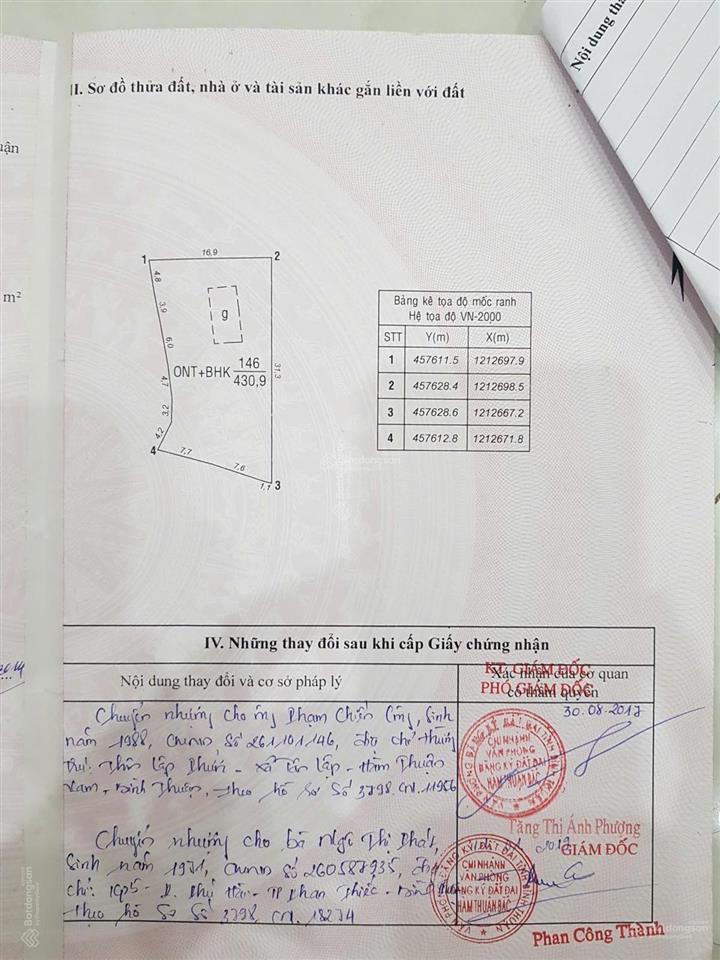 Nội dung tha
uận
m²
II. Sơ đồ thửa đất, nhà ở và tài sản khác gắn liền với đất
1
16,9
2
4,8
3,9
g
6,0
ONT+BHK 146
430,9
31,3
4,7
3,2
4,2
4
7,7
7,6
1,1
3
Bảng kê tọa độ mốc ranh
Hệ tọa độ VN-2000
STT Y(m) X(m)
1 457611.5 1212697.9
2 457628.4 1212698.5
3 457628.6 1212667.2
4 457612.8 1212671.8
Batdongsan
IV. Những thay đổi sau khi cấp Giấy chứng nhận
Nội dung thay đổi và cơ sở pháp lý
Xác nhận của cơ quan
có thẩm quyền
KT. GIÁM ĐỐC
PHÓ GIÁM ĐỐC
Chuyển nhượng cho ông Phạm Chiến Công, Sinh
năm 1988, CMND số 261101146, địa chỉ thường
trú: Thôn Lập Phước - Xã Tân Lập - Hàm Thuận
Nam - Bình Thuận, theo hồ sơ số 3798.CN.
30.08.2017
CHI NHÁNH
VĂN PHÒNG
ĐĂNG KÝ ĐẤT ĐAI
HÀM THUẬN BẮC
Tăng Thị Ánh Phượng
Chuyển nhượng cho bà Ngô Thị Phát,
Sinh năm 1971, CMND số 260587935, địa
chỉ: KP5 - P. Phú Hài - TP Phan Thiết - Bình Thuận
theo hồ sơ số 3798.CN.
GIÁM ĐỐC
CHI NHÁNH
VĂN PHÒNG
ĐĂNG KÝ ĐẤT ĐAI
HÀM THUẬN BẮC
Phan Công Thành
Batdongsan